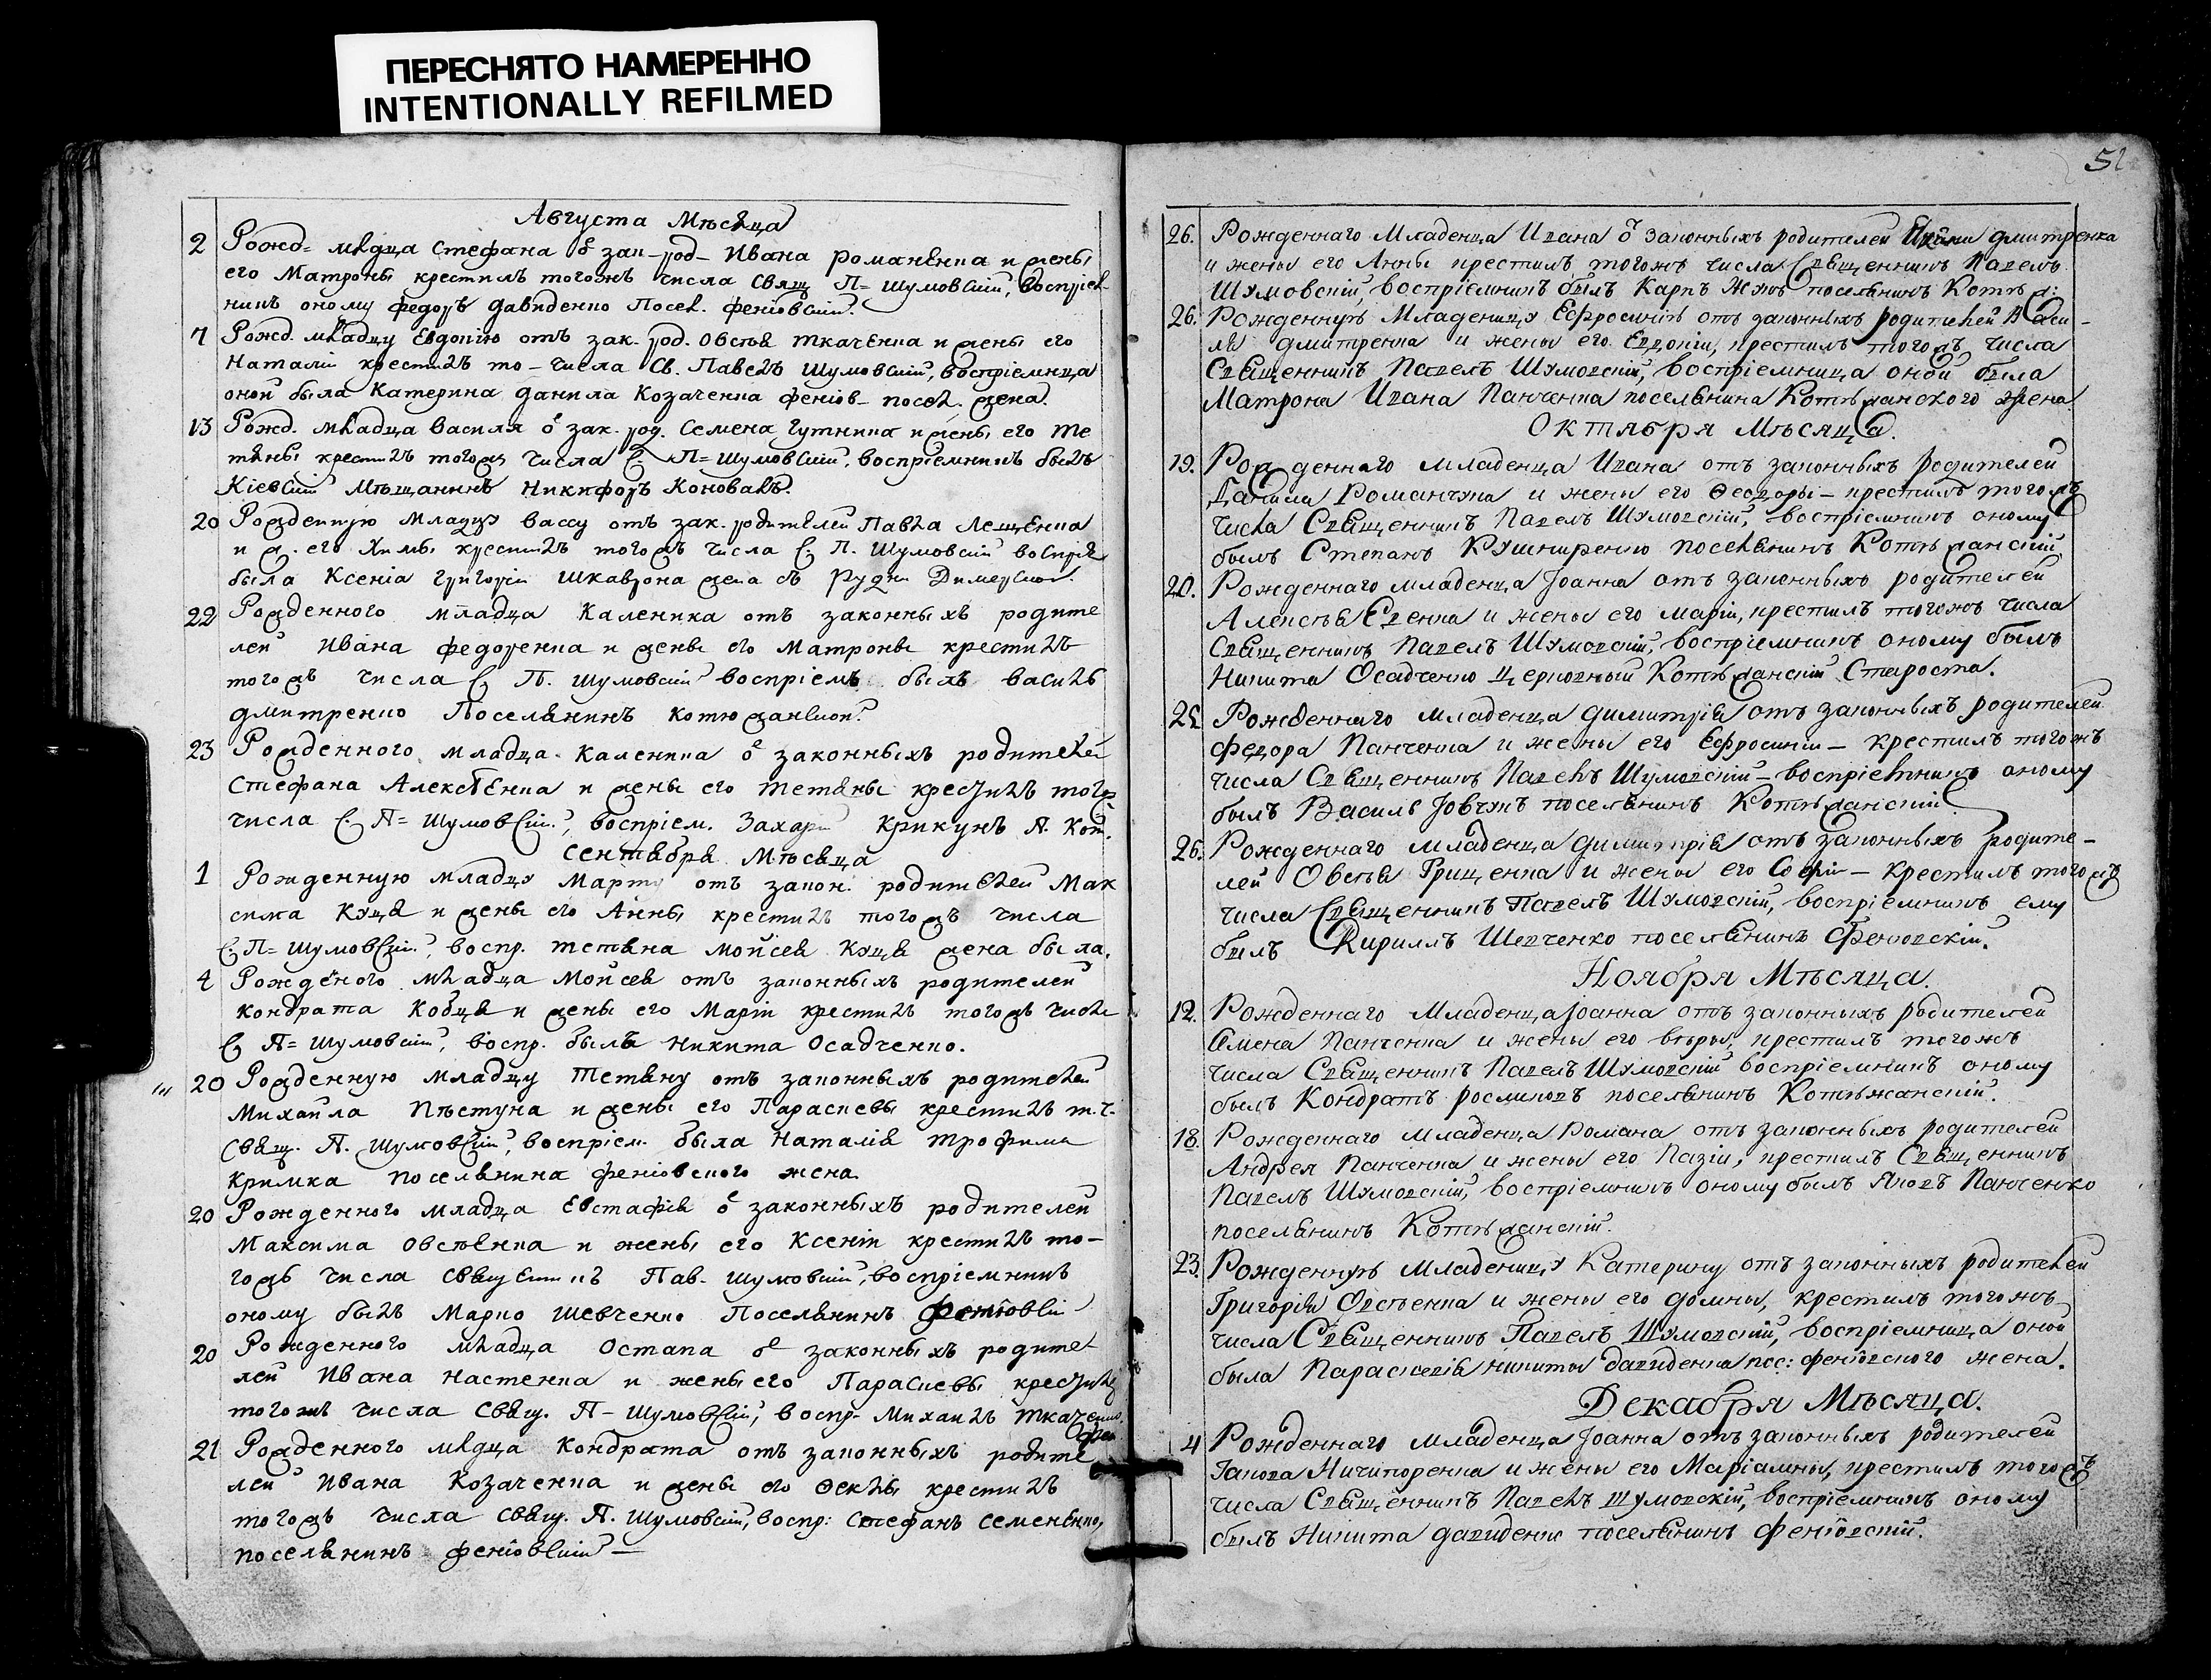 ПЕРЕСНЯТО НАМЕРЕННО
INTENTIONALLY REFILMED
Августа Мѣсяца
2 Рожд= млдца Стефана ѿ зак-род- Ивана Романенка и жены
его Матроны крестилъ тогожъ числа Свящ П= Шумовскій, воспріем-
никъ оному Федоръ Давиденко Посел. Феніовскій.
7 Рожд. младцу Евдокію отъ зак. род. Овсѣя Ткаченка и жены его
Наталіи крестилъ то- числа Св. Павелъ Шумовскій, воспріемница
оной была Катерина Данила Козаченка Феніов- посел. жена.
13 Рожд. младца Василя ѿ зак. род. Семена Гутника и жены его Те
тяны крестилъ тогожъ числа С. П= Шумовскій, воспріемникъ былъ
Кіевскій Мѣщанинъ Никифоръ Коновалъ.
20 Рожденную Младцу Вассу отъ зак. родителей Павла Лещенка
и ж. его Химы крестилъ тогожъ числа С. П. Шумовскій воспріе
была Ксеніа Григорія Шкаврона жена съ Рудни Димерской.
22 Рожденного младца Каленика отъ законныхъ родите
лей Ивана Федоренка и жены его Матроны крестилъ
тогожъ числа С. П. Шумовскій воспріемъ былъ Василь
Дмитренко Поселянинъ Котюжанской
23 Рожденного младца Каленика ѿ законныхъ родителей
Стефана Алексѣенка и жены его Тетяны крестилъ тогож
числа С. П= Шумовскій, воспріем. Захарій Крикунъ П. Кот.
Сентября Мѣсяца
1 Рожденную младцу Марту отъ закон. родителей Мак
сима Куця и жены его Анны крестилъ тогожъ числа
С. П= Шумовскій, воспр. Тетяна Мойсея Куця жена была.
4 Рожденого младца Мойсея отъ законныхъ родителей
Кондрата Кобця и жены его Маріи крестилъ тогожъ числа
С. П= Шумовскій, воспр. былъ Никита Осадченко.
20 Рожденную младцу Тетяну отъ законныхъ родителей
Михаила Пѣстуна и жены его Параскевы крестилъ т.ч.
Свящ. П. Шумовскій, воспріем. была Наталія Трофима
Кримка поселянина Феніовского жена
20 Рожденного младца Евстафія ѿ законныхъ родителей
Максима Овсѣенка и жены его Ксеніи крестилъ то-
гожъ числа Священникъ Пав. Шумовскій, воспріемникъ
оному былъ Марко Шевченко Поселянинъ Феніовскі
20 Рожденного младца Остапа ѿ законныхъ родите
лей Ивана Настенка и жены его Параскевы крестилъ
тогожъ числа Свящ. П- Шумовскій, воспр- Михаилъ Ткаченко.
Фен
21 Рожденного млдца Кондрата отъ законныхъ родите
лей Ивана Козаченка и жены его Ѳеклы крестилъ
тогожъ числа Свящ. П. Шумовскій, воспр: Стефанъ Семененко,
поселянинъ Феніовскій —
52
26. Рожденнаго Младенца Ивана ѿ законныхъ родителей Ивана Дмитренка
и жены его Анны крестилъ тогожъ числа Священникъ Павелъ
Шумовскій, воспріемникъ былъ Карпъ Жукъ поселянинъ Котюж:
26. Рожденную Младеницу Ефросинію отъ законныхъ родителей Васи-
ля Дмитренка и жены его Евдокіи, крестилъ тогожъ числа
Священникъ Павелъ Шумовскій, воспріемница оной была
Матрона Ивана Панченка поселянина Котюжанского жена.
Октября Мѣсяца.
19. Рожденнаго Младенца Ивана отъ законныхъ родителей
Данила Романчука и жены его Ѳеодоры – крестилъ тогожъ
числа Священникъ Павелъ Шумовскій, воспріемникъ оному
былъ Степанъ Кушниренко поселянинъ Котюжанскій
20. Рожденнаго младенца Іоанна отъ законныхъ родителей
Алексѣя Евенка и жены его Маріи, крестилъ тогожъ числа
Священникъ Павелъ Шумовскій, воспріемникъ оному былъ
Никита Осадченко Церковный Котюжанскій Староста.
25. Рожденнаго младенца Димитрія отъ законныхъ родителей
Федора Панченка и жены его Ефросиніи – крестилъ тогожъ
числа Священникъ Павелъ Шумовскій – воспріемникъ оному
былъ Василь Іовчукъ поселянинъ Котюжанскій
26. Рожденнаго младенца Димитрія отъ законныхъ родите-
лей Овсѣя Грищенка и жены его Софіи – крестилъ тогожъ
числа Священникъ Павелъ Шумовскій, воспріемникъ ему
былъ Кириллъ Шевченко поселянинъ Феніовскій.
Ноября Мѣсяца.
12. Рожденнаго Младенца Іоанна отъ законныхъ родителей
Семена Панченка и жены его Вѣры, крестилъ тогожъ
числа Священникъ Павелъ Шумовскій воспріемникъ оному
былъ Кондратъ Росликовъ поселянинъ Котюжанскій.
18. Рожденнаго Младенца Романа отъ законныхъ родителей
Андрея Панченка и жены его Пазіи, крестилъ Священникъ
Павелъ Шумовскій, воспріемникъ оному былъ Яковъ Панченко
поселянинъ Котюжанскій.
23. Рожденную Младеницу Катерину отъ законныхъ родителей
Григорія Овсѣенка и жены его Домны, крестилъ тогожъ
числа Священникъ Павелъ Шумовскій, воспріемница оной
была Параскевія Никиты Давиденка пос: Феніовского жена.
Декабря Мѣсяца.
4 Рожденнаго младенца Іоанна отъ законныхъ родителей
Іакова Ничипоренка и жены его Маріамны, крестилъ тогожъ
числа Священникъ Павелъ Шумовскій, воспріемникъ оному
былъ Никита Давиденко поселянинъ Феніовскій.